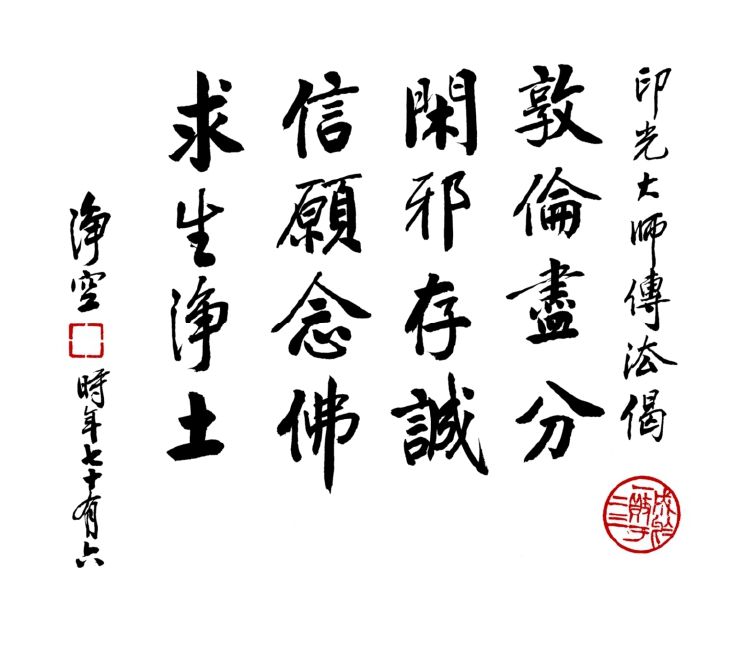 印光大师傳法偈
敦倫盡分
閑邪存誠
信願念佛
求生浄土
浄空
時年七十有六